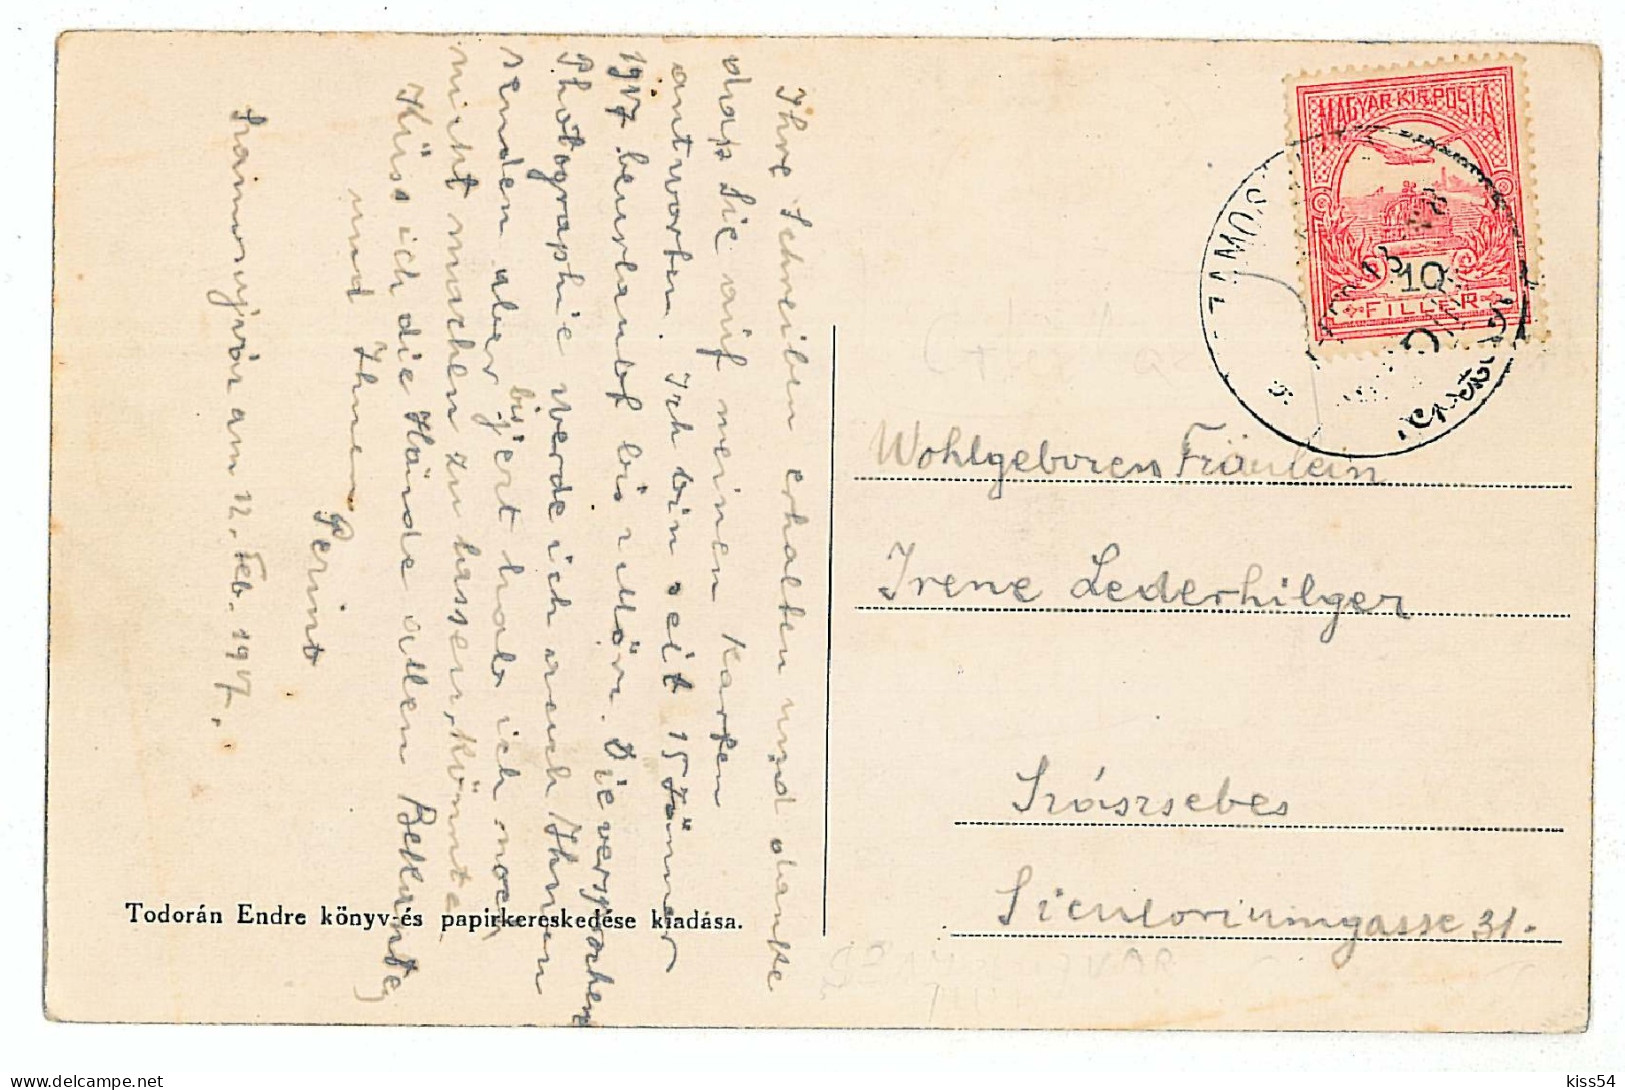 Ihre Schreiben erhalten und danke
daß Sie auf meinen Karten
antworten. Ich bin seit 15 Jänner
1917 beurlaubt bis 1 März. Die versprochene
Photographie werde ich auch Ihnen
senden aber bis jezt hab ich noch
nicht machen zu lassen, könnte.
Küss ich die Hände allen Bekannte,
und Ihnen
Perint
Szamosujvár am 12. Feb. 1917.
Todorán Endre könyv-és papirkereskedése kiadása.
MAGYAR KIR. POSTA
10
FILLÉR
SZAMOSUJVÁR
Wohlgeboren Fräulein
Irene Lederhilger
Szászsebes
Sicutoriumgasse 31.
SZAMOSUJVÁR
kiss54
delcampe.net